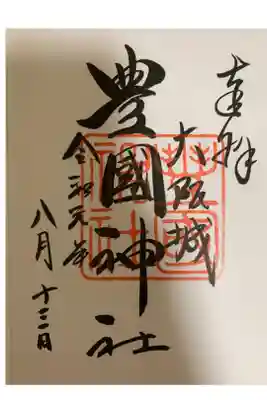 奉拝
大阪城
豊國神社
令和元年
八月十二日